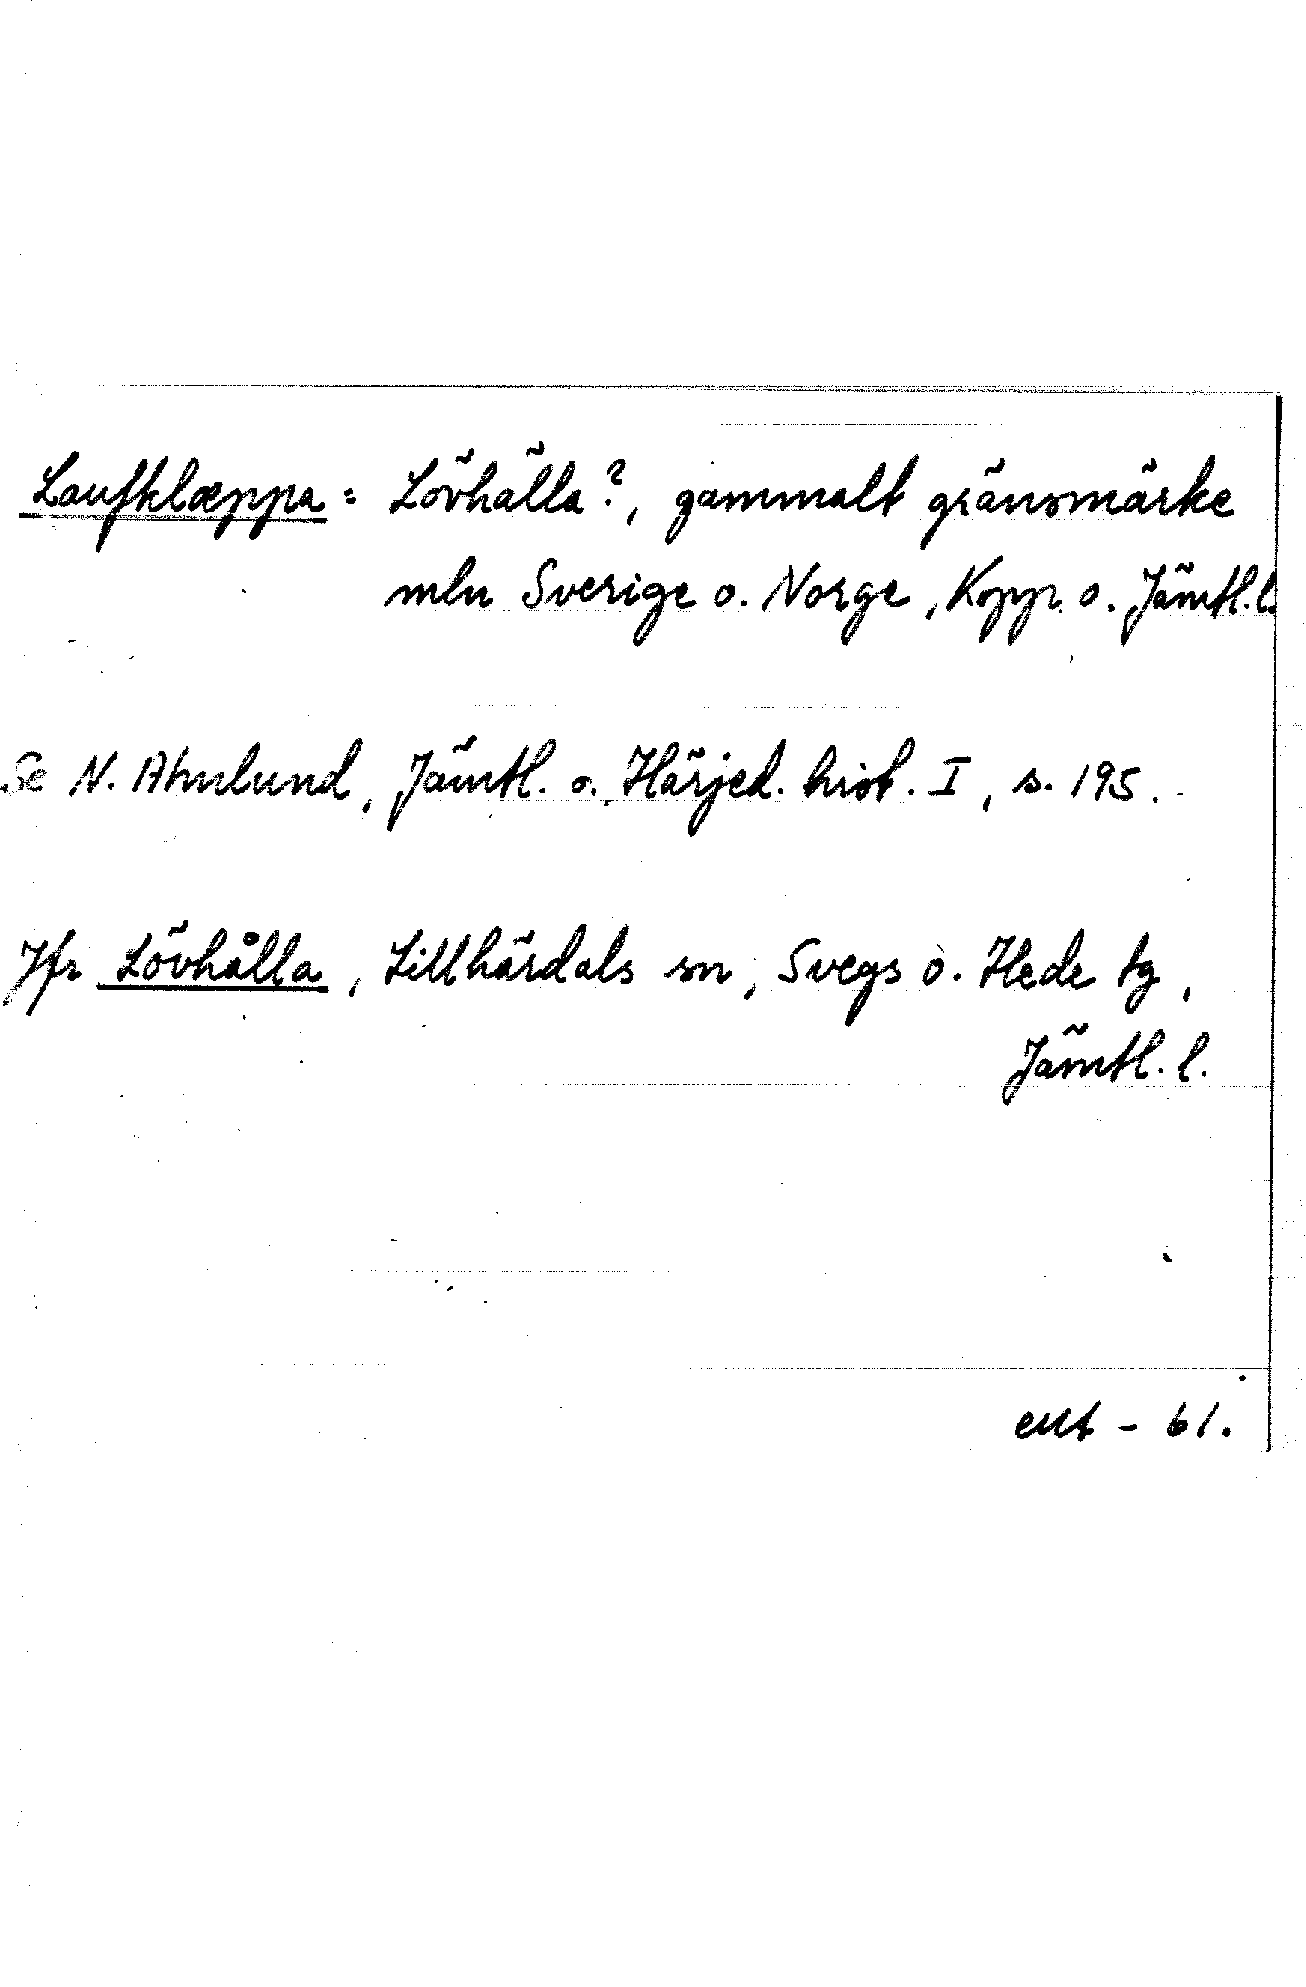 Laufklæppa = Lövhälla?, gammalt gränsmärke
mln Sverige o. Norge, Kopp. o. Jämtl. l.
Se N. Ahnlund, Jämtl. o. Härjed. hist. I, s. 195.
Jfr Lövhålla, Lillhärdals sn, Svegs o. Hede tg,
Jämtl. l.
- 61.